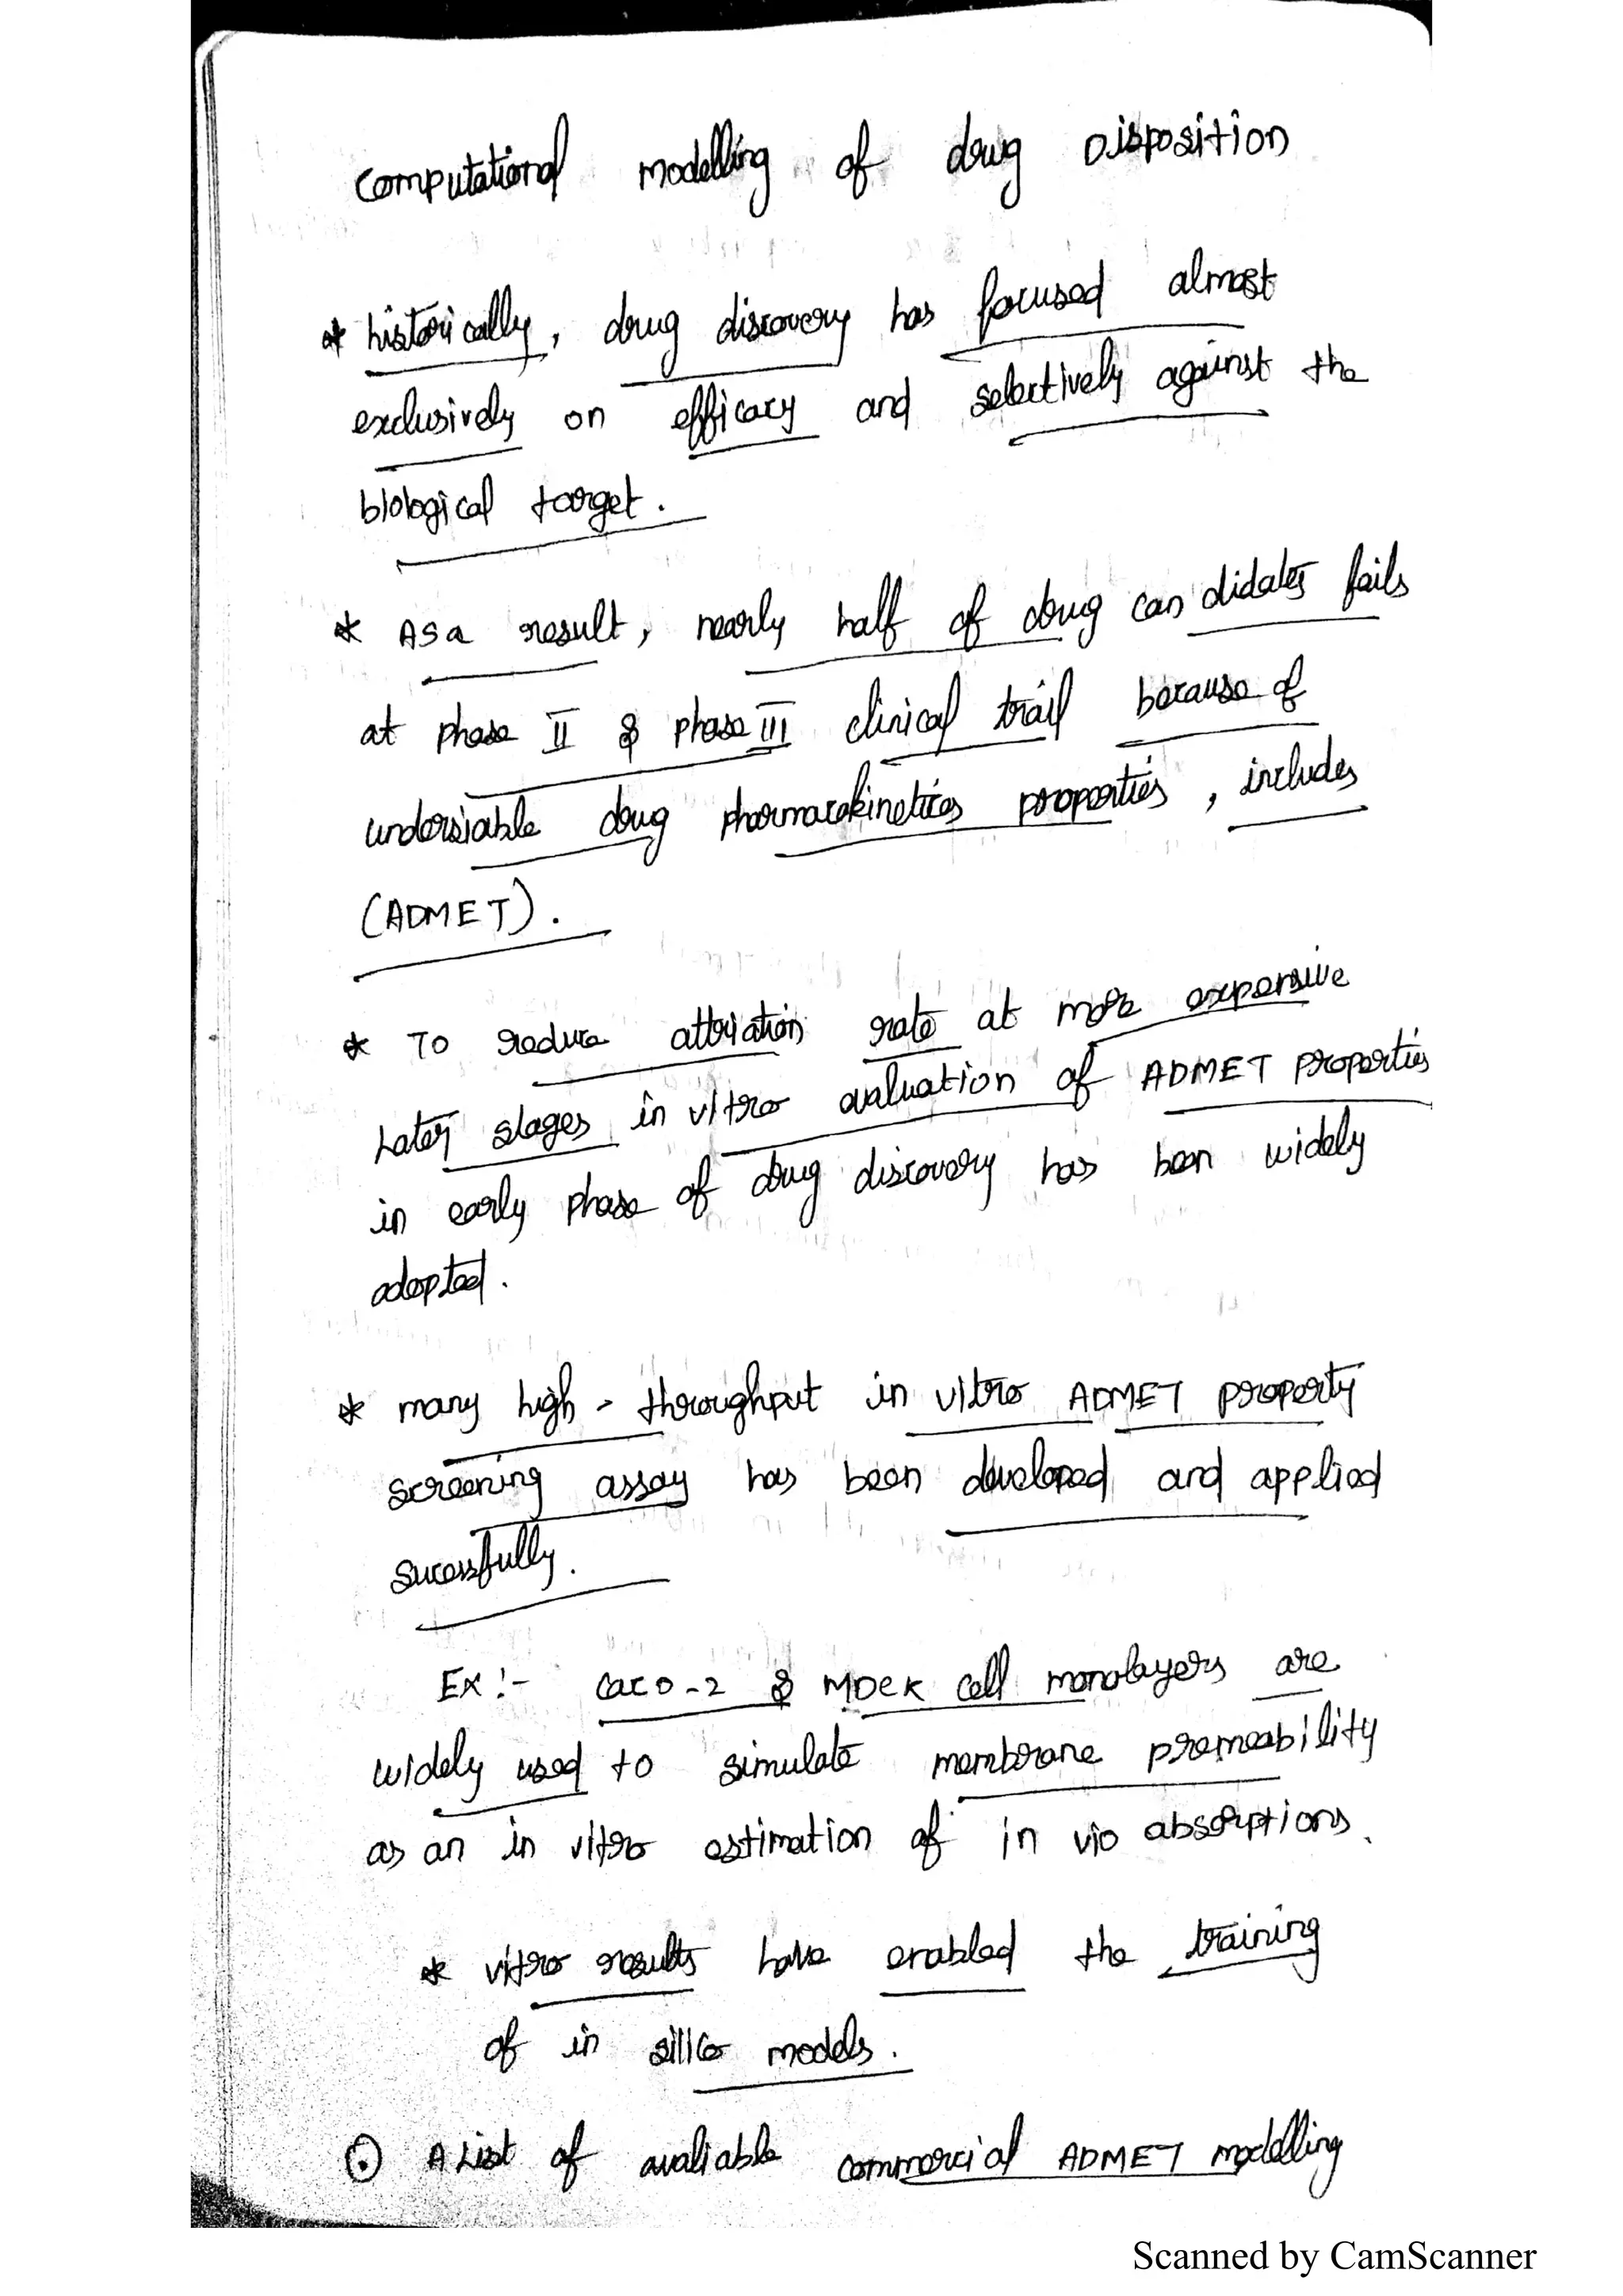 computational modelling of drug Disposition
* historically, drug discovery has focused almost
exclusively on efficacy and selectively against the
biological target.
* AS a result, nearly half of drug candidates fails
at phase II & phase III clinical trail because of
undersiable drug pharmacokinetics properties, includes
(ADMET).
* TO reduce attriation rate at more expensive
Later stages in vitro evaluation of ADMET properties
in early phase of drug discovery has been widely
adopted.
* many high - throughput in vitro ADMET property
screening assay has been developed and applied
sucessfully.
EX :- caco-2 & MDCK cell monolayers are
widely used to simulate membrane premeability
as an in vitro estimation of in vio absorptions.
* vitro results have enabled the training
of in silico models.
⊙ A List of avaliable commercial ADMET modelling
Scanned by CamScanner